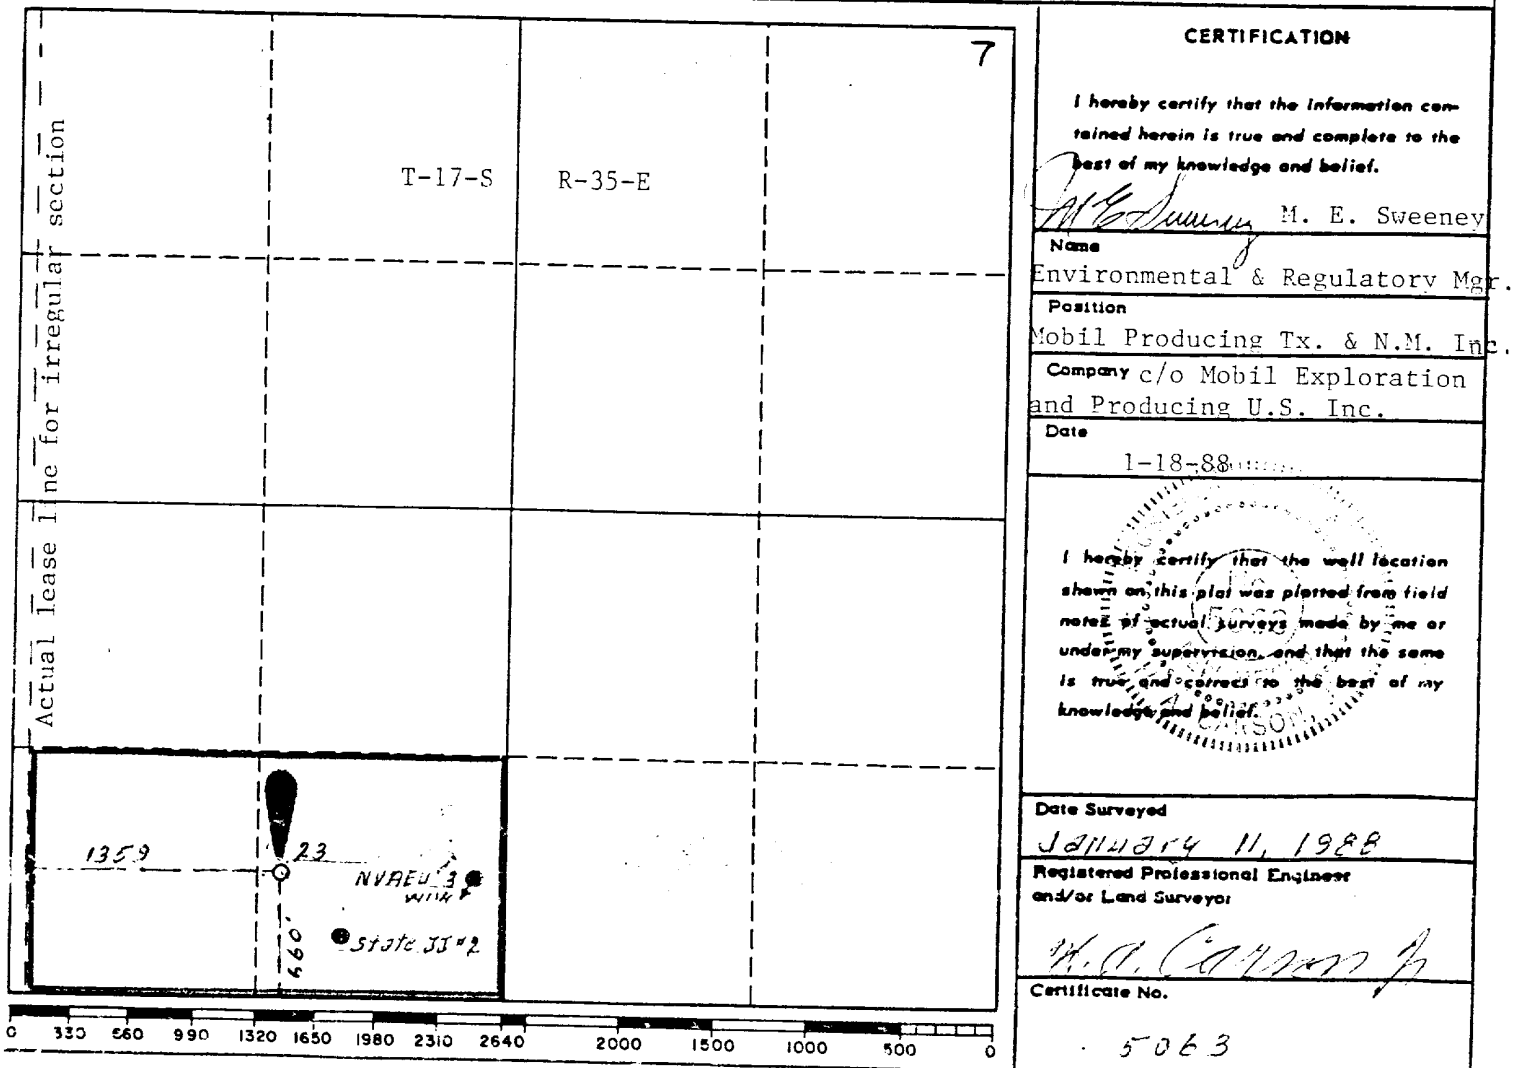 7
T-17-S R-35-E
Actual lease line for irregular section
1359
23
660'
State JJ #2
0 330 660 990 1320 1650 1980 2310 2640 2000 1500 1000 500 0
CERTIFICATION
I hereby certify that the information con-
tained herein is true and complete to the
best of my knowledge and belief.
M E Sweeney M. E. Sweeney
Name
Environmental & Regulatory Mgr.
Position
Mobil Producing Tx. & N.M. Inc.
Company c/o Mobil Exploration
and Producing U.S. Inc.
Date
1-18-88
I hereby certify that the well location
shown on this plat was plotted from field
notes of actual surveys made by me or
under my supervision, and that the same
is true and correct to the best of my
knowledge and belief.
5063
CARSON
Date Surveyed
January 11, 1988
Registered Professional Engineer
and/or Land Surveyor
W. A. Carson Jr
Certificate No.
5063